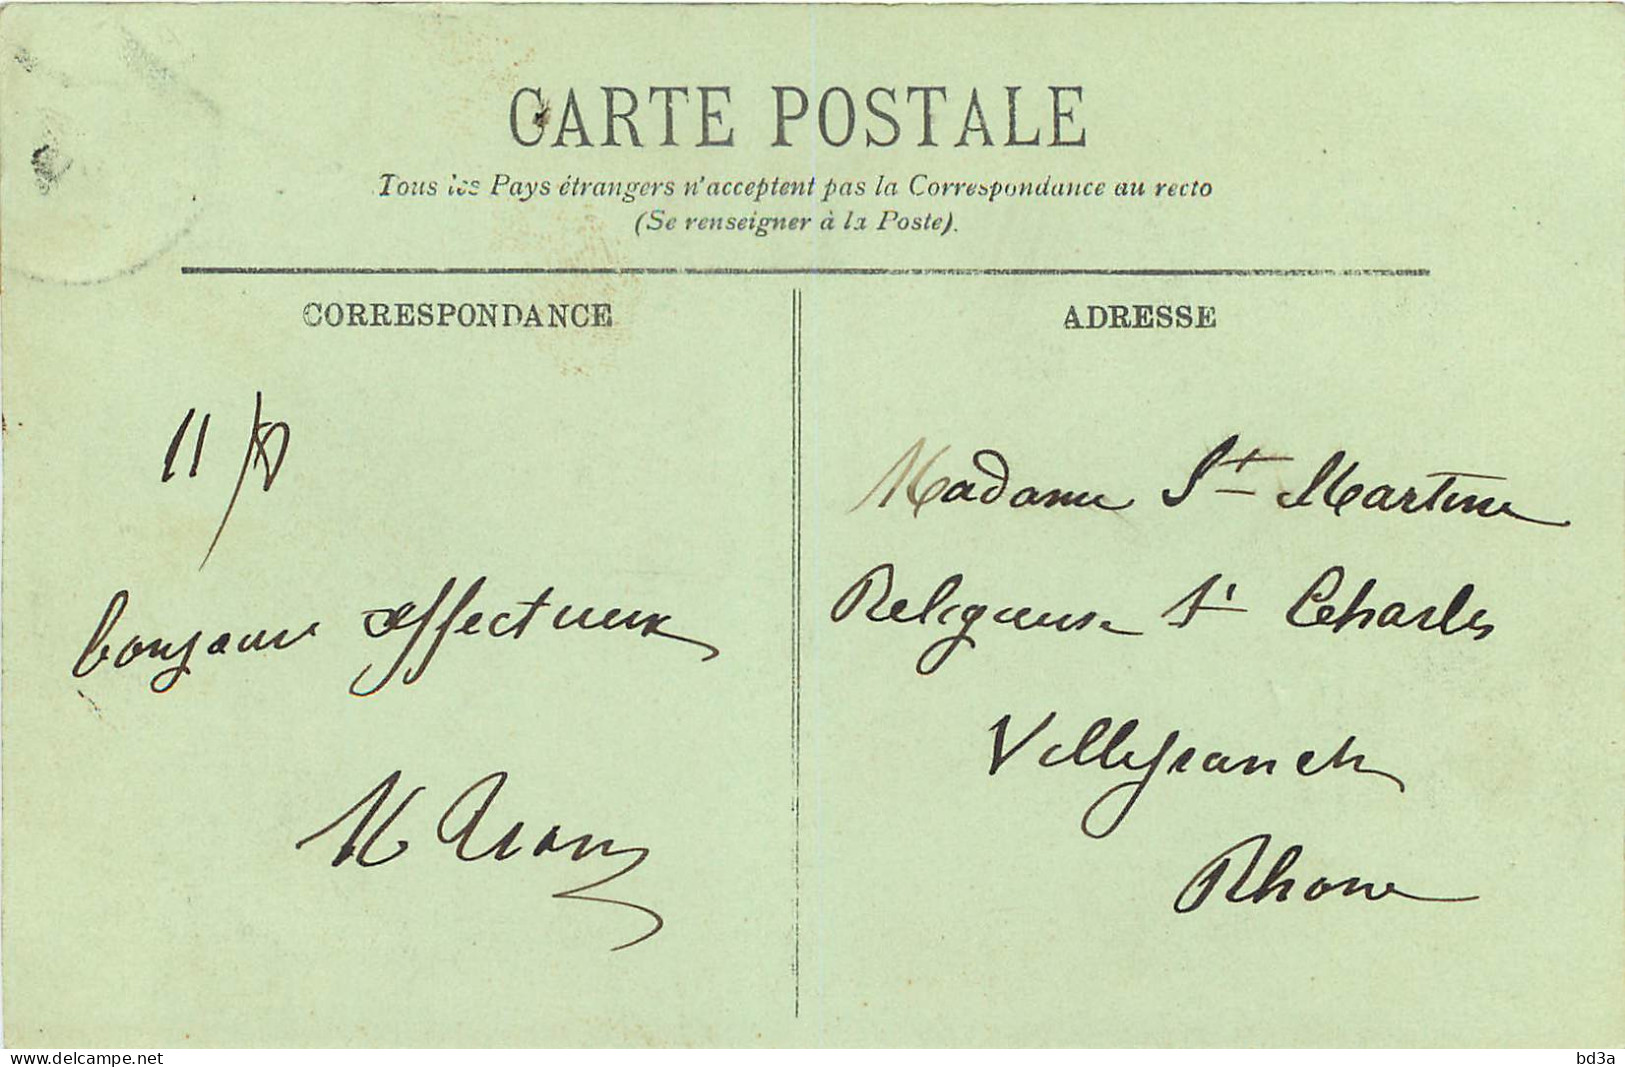 CARTE POSTALE
Tous les Pays étrangers n'acceptent pas la Correspondance au recto
(Se renseigner à la Poste).
CORRESPONDANCE
11/8
bonjour affectueux
M
ADRESSE
Madame St Martine
Religieuse St Charles
Villefranche
Rhone
www.delcampe.net
bd3a